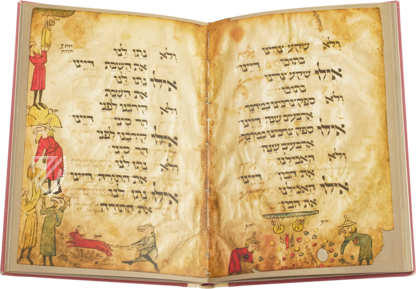 ולא שקע צרינו
בתוכו דיינו
אילו שקע צרינו
בתוכו
ולא ספק צרכינו במדבר
ארבעים שנה דיינו
אילו ספק צרכינו במדבר
ארבעים שנה
ולא האכילנו
את המן דיינו
אילו האכילנו
את המן
ולא נתן לנו
את השבת דיינו
אילו נתן לנו
את השבת
ולא קרבנו לפני
הר סיני דיינו
אילו קרבנו לפני
הר סיני
ולא נתן לנו
את התורה דיינו
אילו נתן לנו
את התורה